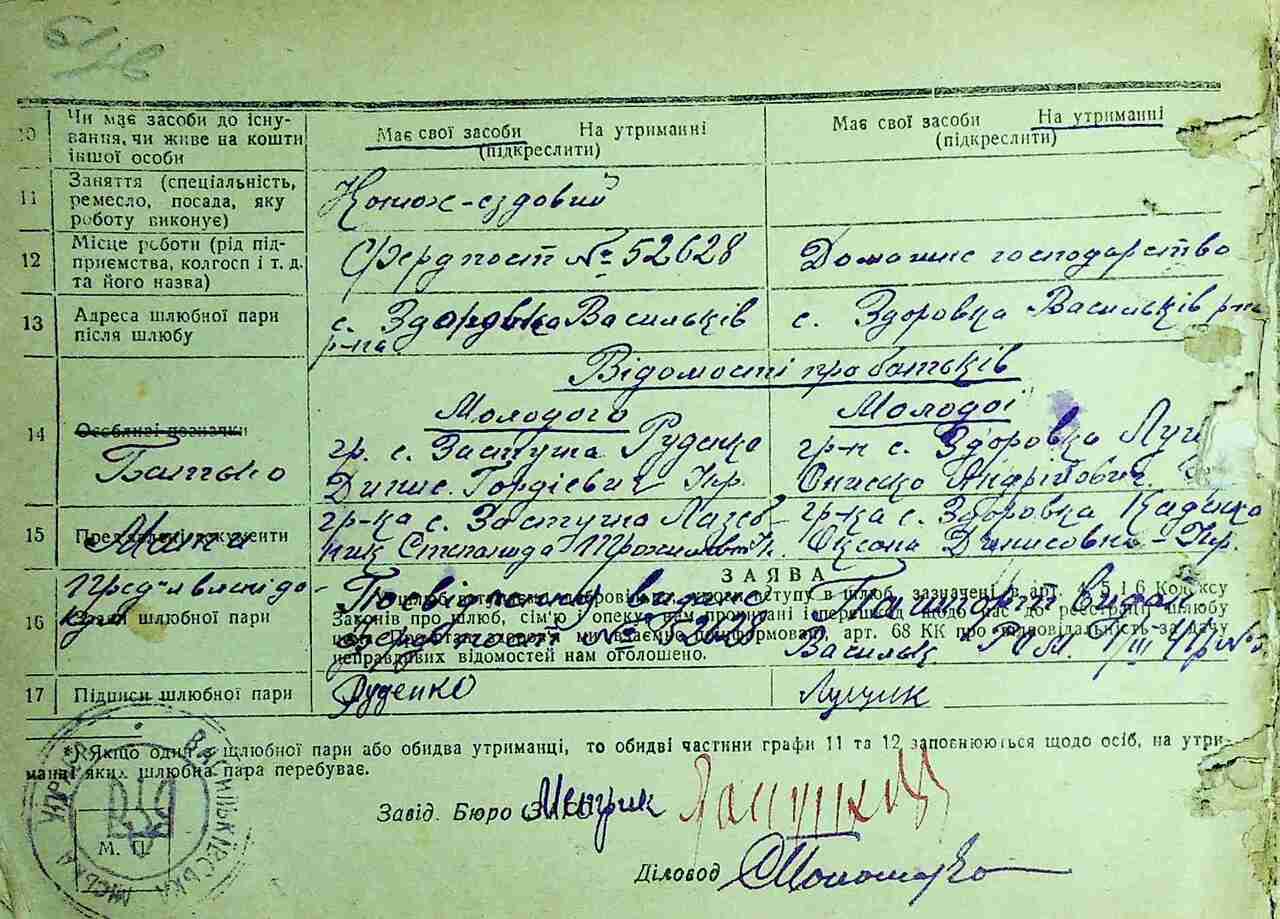 10 Чи має засоби до існу-
вання, чи живе на кошти
іншої особи
Має свої засоби На утриманні
(підкреслити)
Має свої засоби На утриманні
(підкреслити)
11 Заняття (спеціальність,
ремесло, посада, яку
роботу виконує)
Конюх-єздовий
12 Місце роботи (рід під-
приємства, колгосп і т. д.
та його назва)
Фердпост № 52628
Домашнє господарство
13 Адреса шлюбної пари
після шлюбу
с. Здоровка Васильків
р-на
с. Здоровка Васильків р-на
Відомості про батьків
Молодого
Молодої
14 Особливі позначки
Батько
гр. с. Застугна Руденко
Динис Гордієвич Нр.
гр-н с. Здоровка
Онисько Андрійович.
15 Пред'явлені документи
Мати
гр-ка с. Застугна Лазеб-
ник Степанида
гр-ка с. Здоровка
Оксана Динисовна - Нр.
ЗАЯВА
Пред'явлені до-
16 шлюбної пари
У шлюб вступаємо добровільно, умови вступу в шлюб, зазначені в арт. 4, 5 і 6 Кодексу
Законів про шлюб, сім'ю і опеку нам прочитані і перешкод щодо нас до реєстрації шлюбу
нема, про стан здоров'я ми взаємно поінформовані, арт. 68 КК про відповідальність за дачу
неправдивих відомостей нам оголошено.
Посвідчення видане
Пашпорт видан
Васильк
17 Підписи шлюбної пари
Руденко
*) Якщо один з шлюбної пари або обидва утриманці, то обидві частини графи 11 та 12 заповнюються щодо осіб, на утри-
манні яких шлюбна пара перебуває.
Завід. Бюро ЗАГС
М. П.
Діловод Пономарко
ВАСИЛЬКІВСЬКА МІСЬКА УПРАВА